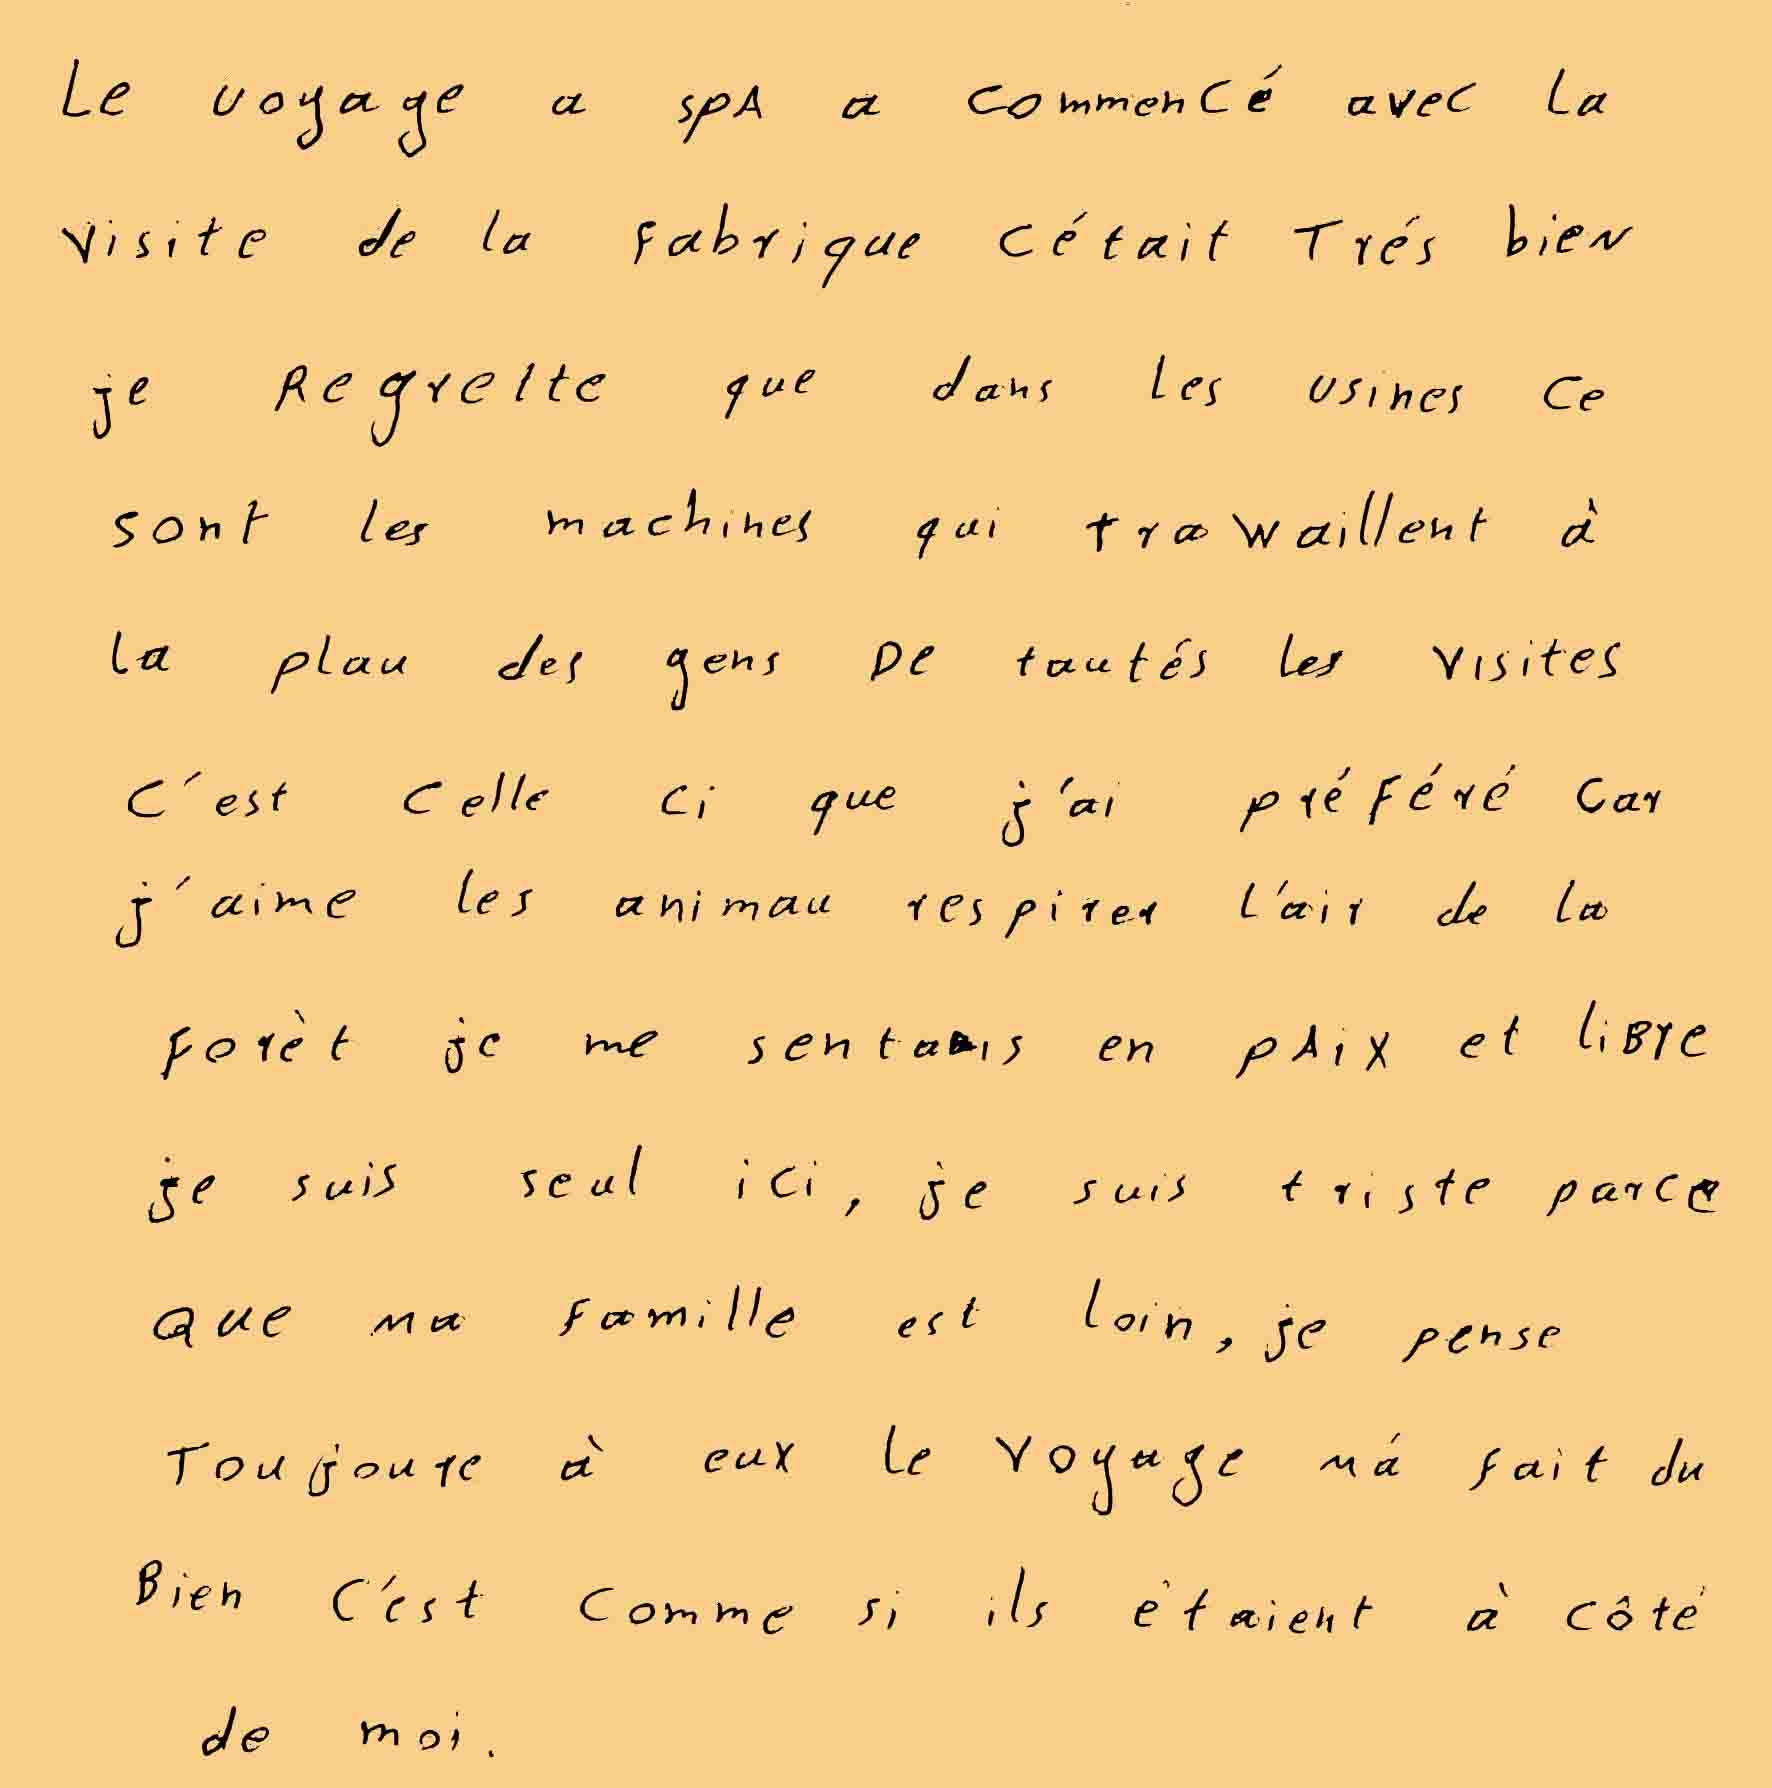 Le voyage a spA a commencé avec la
visite de la fabrique Cétait Trés bien
je Regrette que dans les usines ce
sont les machines qui trawaillent à
la plau des gens De tautés les visites
C'est Celle ci que j'ai préféré Car
j'aime les animau respirer l'air de la
forèt je me sentais en pAix et liBre
je suis seul ici, je suis triste parce
Que ma famille est loin, je pense
Toujoure à eux le voyage má fait du
Bien C'est Comme si ils étaient à côté
de moi.